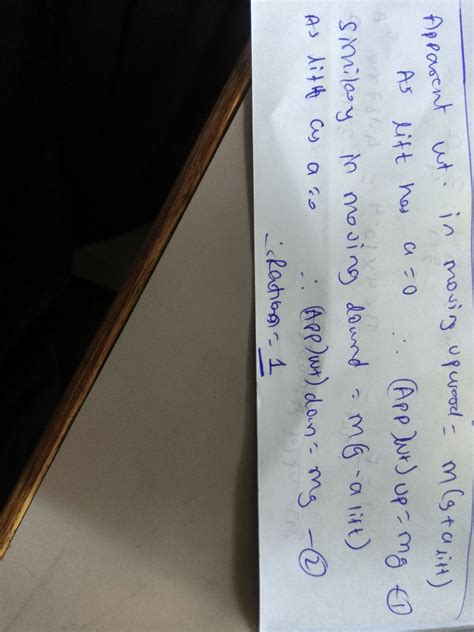 Apparent wt. in moving upward = m(g+a lift)
As lift has a=0 ∴ (App)wt) up = mg -①
Similary in moving dound = m(g-a lift)
As lift as a=0 ∴ (App)wt) down = mg -②
∴ Ration = 1